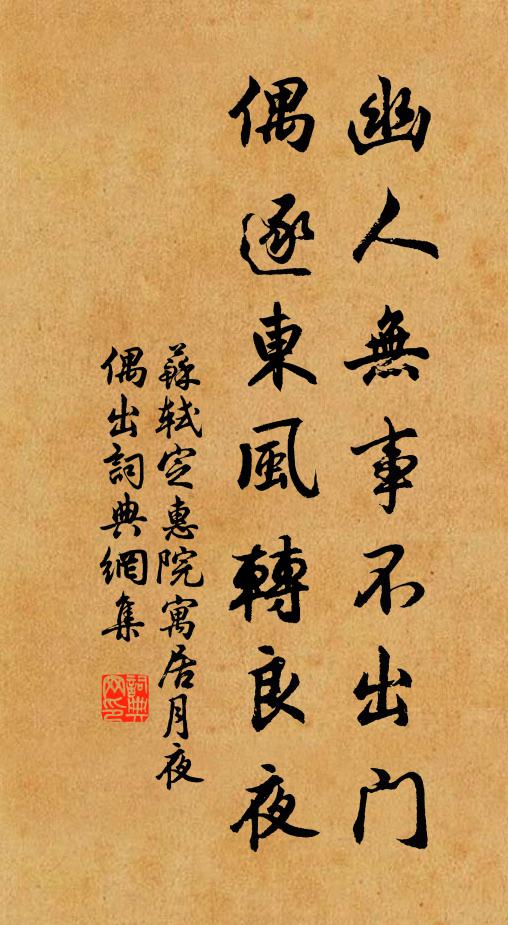 幽人無事不出門
偶逐東風轉良夜
蘇軾定惠院寓居月夜
偶出詞典網集
詞典
网印